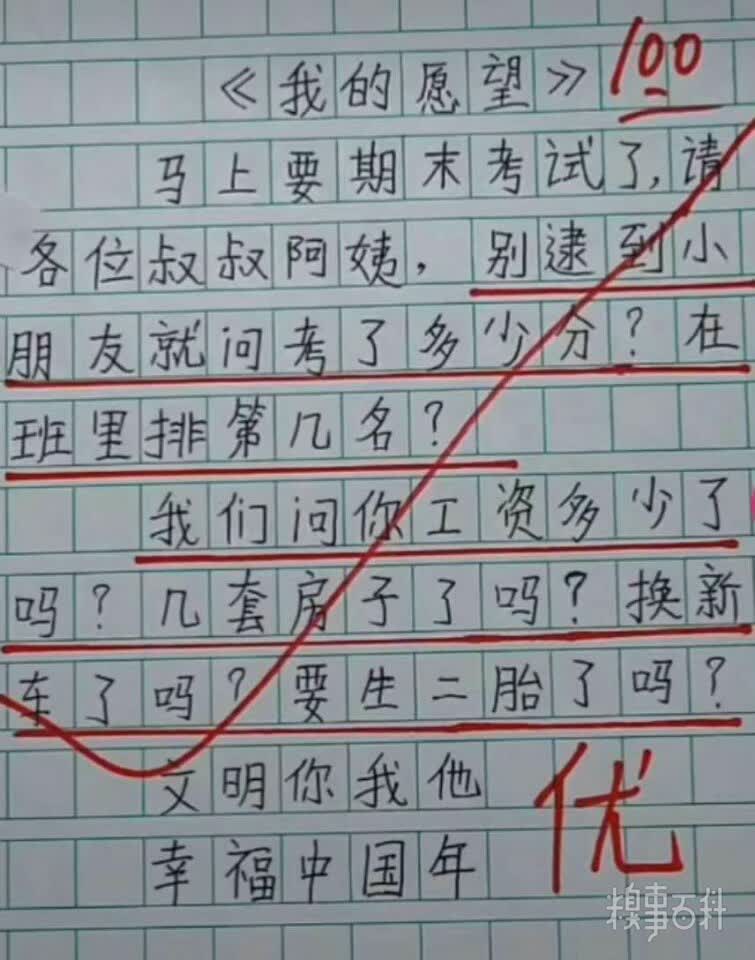 《我的愿望》 100
马上要期末考试了,请
各位叔叔阿姨，别逮到小
朋友就问考了多少分？在
班里排第几名？
我们问你工资多少了
吗？几套房子了吗？换新
车了吗？要生二胎了吗？
文明你我他
优
幸福中国年
糗事百科